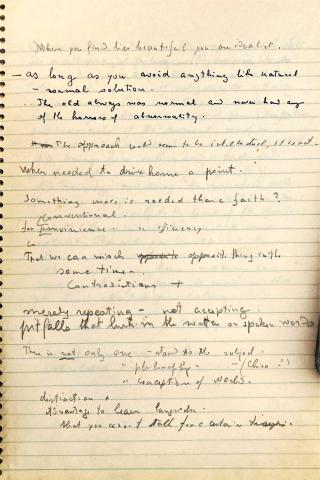 When you find her beautiful you an idealist.
— as long as you avoid anything like natural
– normal solution.
.. The old always was normal and never had any
of the horrors of abnormality.
The approach would seem to be intellectual, it is not.
When needed to drive home a point.
Something more is needed than a faith?
Conventional.
for convenience. efficiency.
That we can wish opposite thing in the
same time..
Contradictions +
merely repeating – not accepting.
pitfalls that lurk in the written or spoken words
There is not only one – to the subject.
" philosophy – (China?)
" conception of World.
distinction
advantage to learn languages.
that you cannot talk for a certain